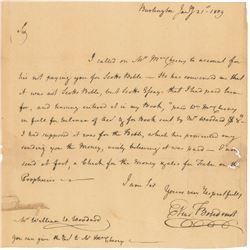 Burlington Jany 21st 1803
Sir
I called on Mr. McCheery to account for
his not paying you for Scotts Bible — He has convinced me that
it was not Scotts Bible, but Scotts Essay that I had paid him
for, and having entered it in my Book, "paid Wm McCheery
in full for balance of for Book sent by Mr Woodard &c"
I had supposed it was for the Bible, which has prevented my
sending you the Money, verily believing it was paid — I now
send it first, a blank for the Money for on the
Prophecies —
I am Sir
Yours very Respectfully
Elias Boudinot
Mr. William W. Woodward
you can give the to Mr Cheery